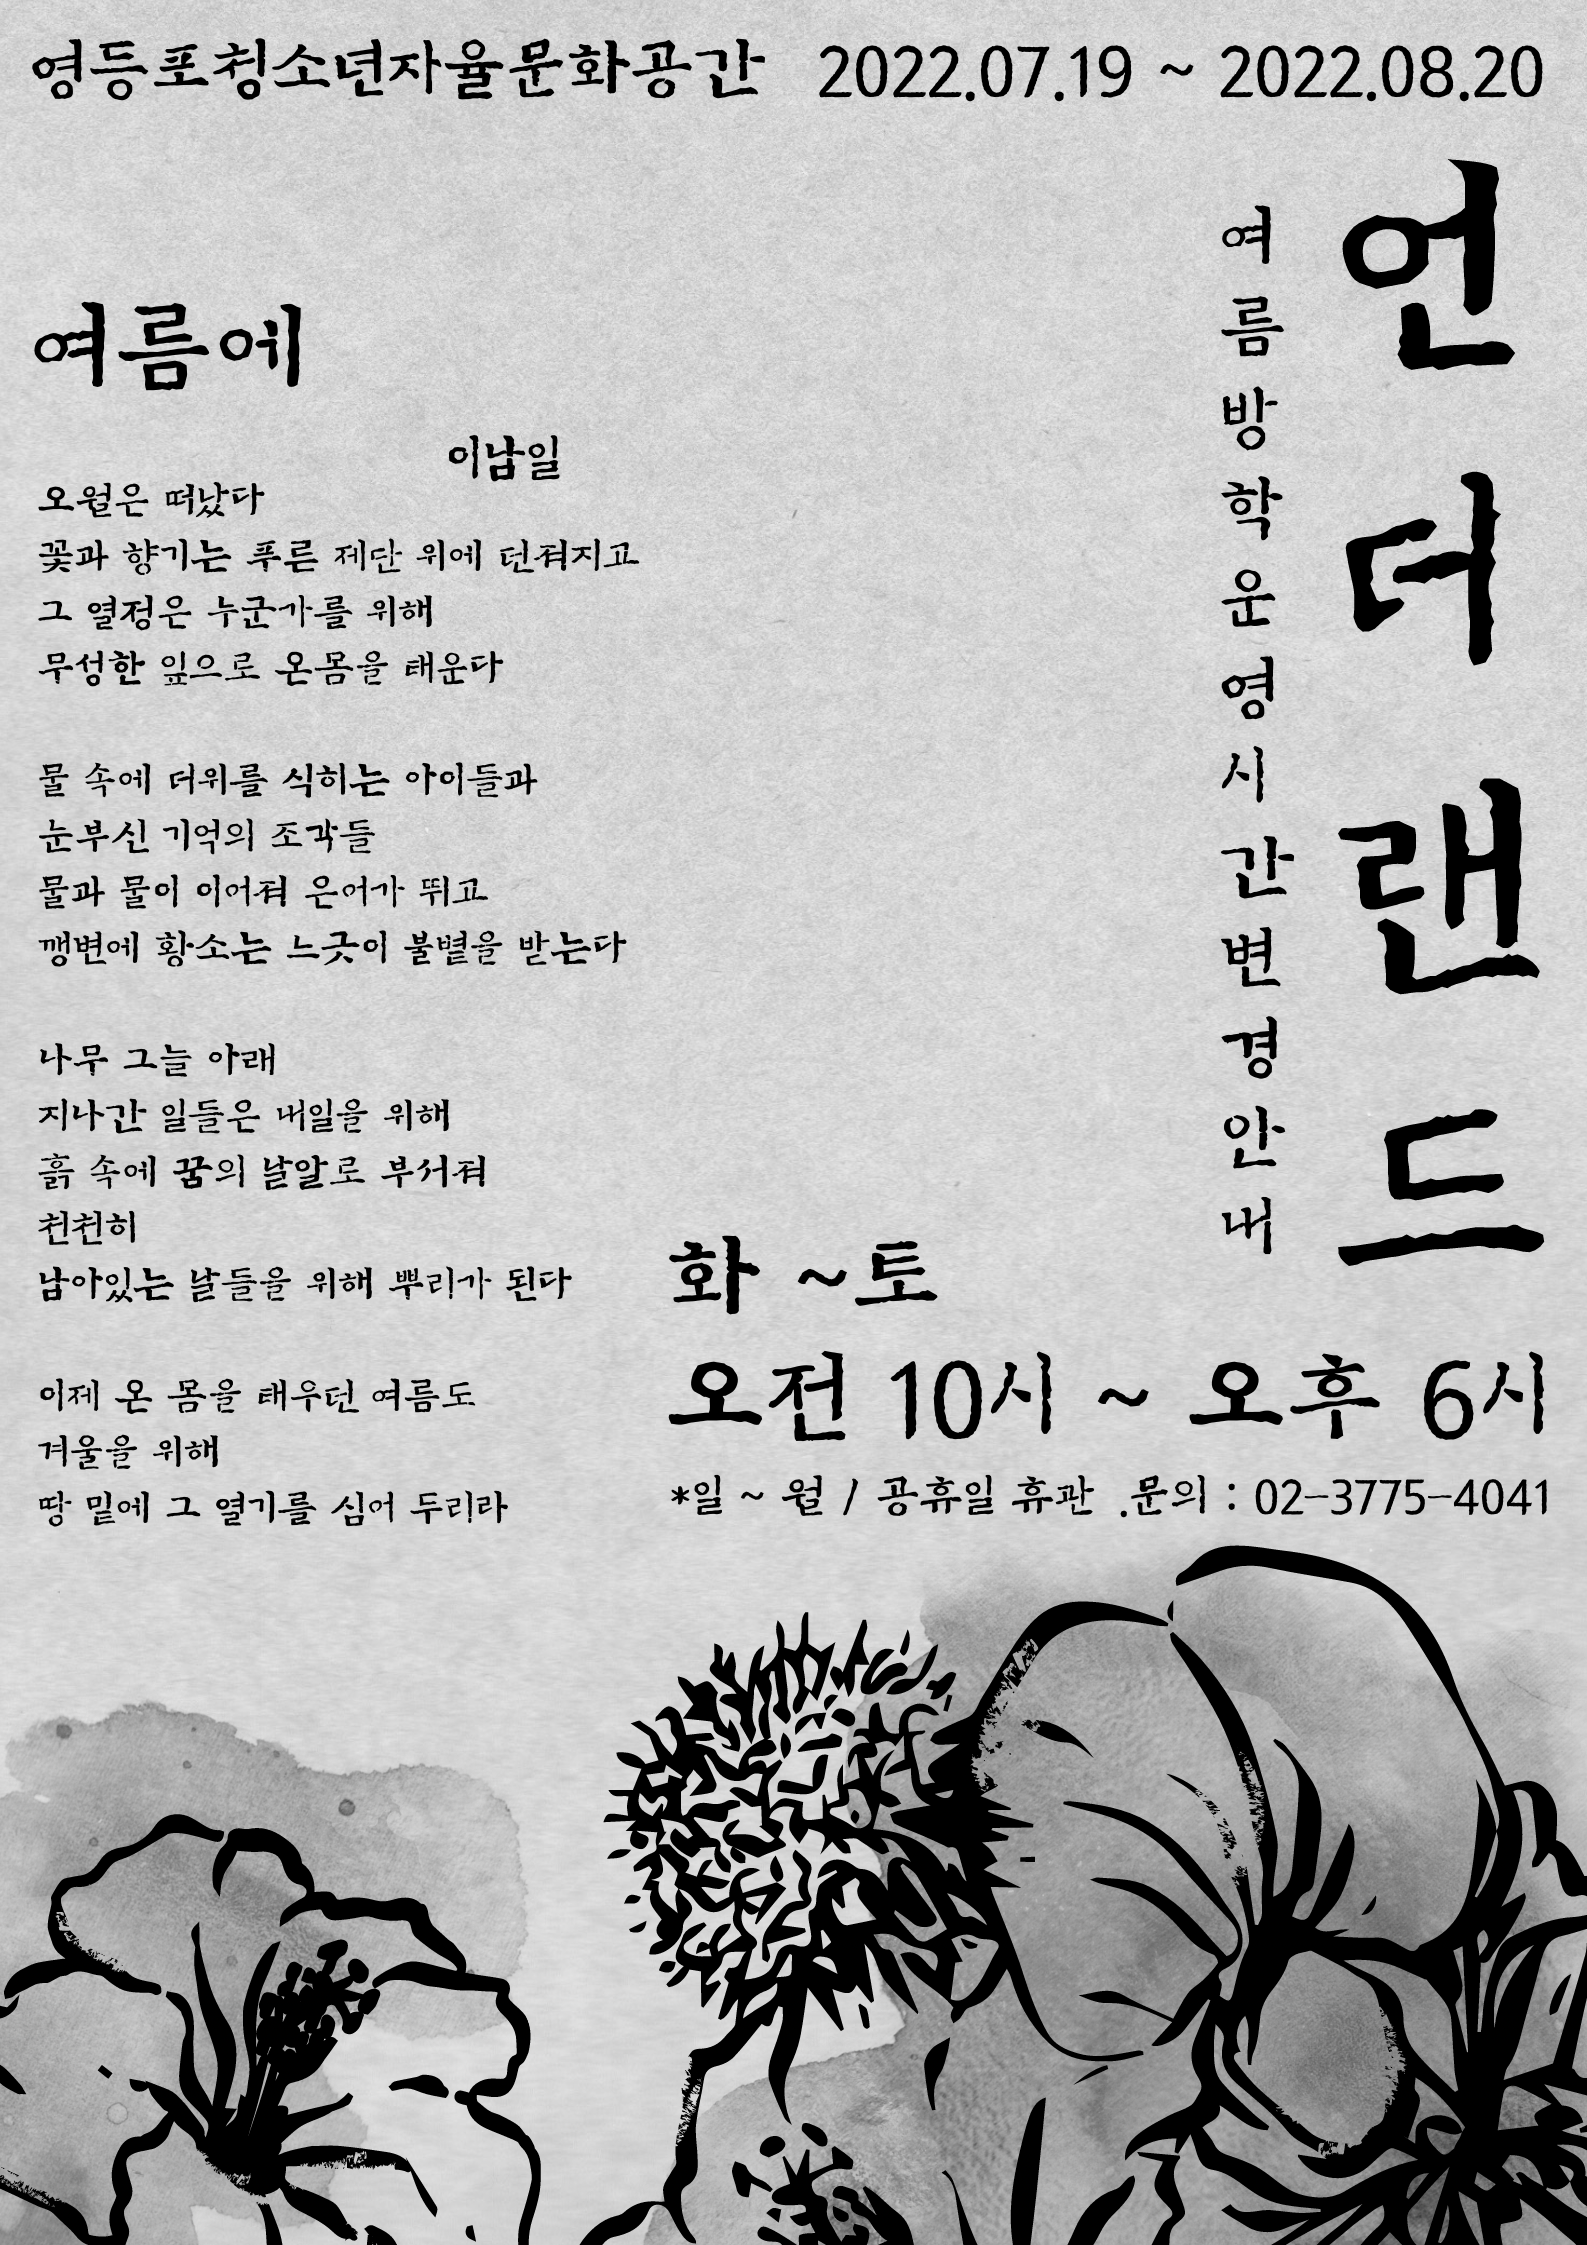 영등포청소년자율문화공간 2022.07.19 ~ 2022.08.20
언더랜드
여름방학운영시간변경안내
여름에
이남일
오월은 떠났다
꽃과 향기는 푸른 제단 위에 던져지고
그 열정은 누군가를 위해
무성한 잎으로 온몸을 태운다
물 속에 더위를 식히는 아이들과
눈부신 기억의 조각들
물과 물이 이어져 은어가 뛰고
깽변에 황소는 느긋이 불볕을 받는다
나무 그늘 아래
지나간 일들은 내일을 위해
흙 속에 꿈의 낱알로 부서져
천천히
남아있는 날들을 위해 뿌리가 된다
이제 온 몸을 태우던 여름도
겨울을 위해
땅 밑에 그 열기를 심어 두리라
화 ~토
오전 10시 ~ 오후 6시
*일 ~ 월 / 공휴일 휴관 .문의 : 02-3775-4041